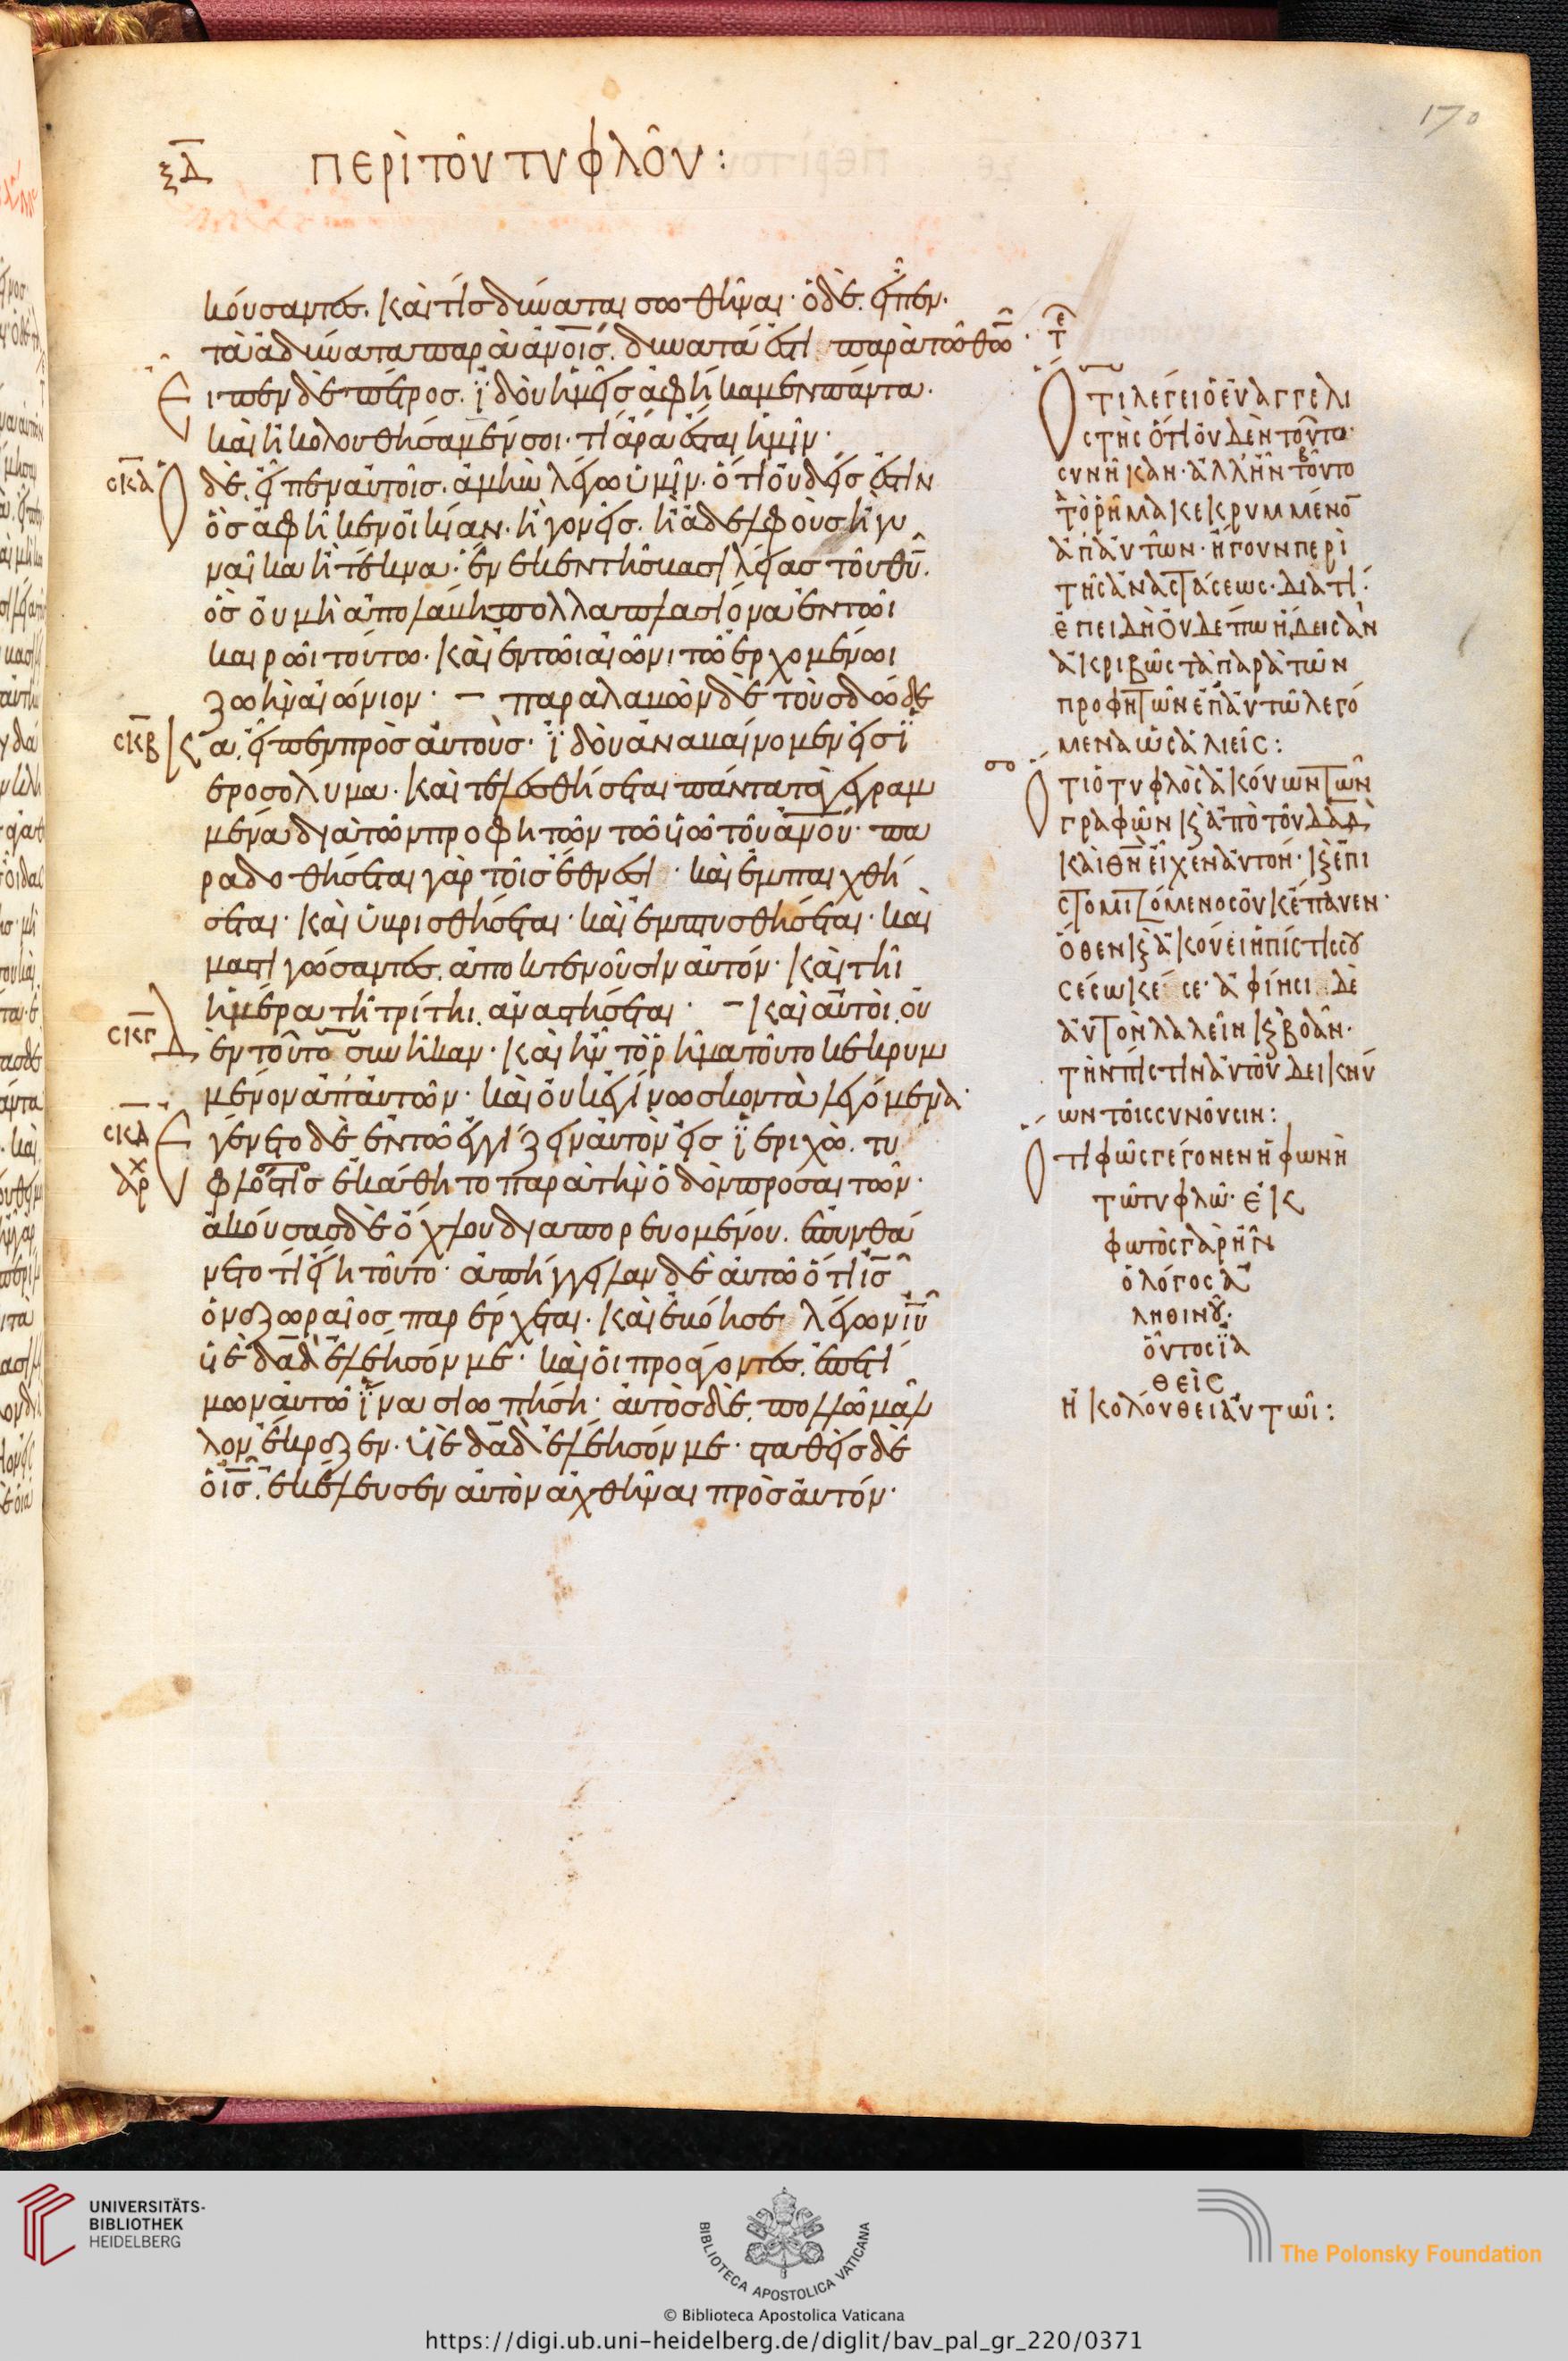 ξδ περὶ τοῦ τυφλοῦ:
170
κούσαντες. καὶ τίς δύναται σωθῆναι· ὁ δὲ. εἶπεν·
τὰ ἀδύνατα παρὰ ἀνοις. δυνατά ἐστι παρὰ τῶ θω·
Ειπεν δὲ πέτρος. ϊδοὺ ἡμεῖς ἀφήκαμεν πάντα.
καὶ ἠκολουθήσαμέν σοι· τί ἄρα ἔσται ἡμῖν·
σκα Ὁ δὲ. εἶπεν αὐτοῖς. ἀμὴν λέγω ὑμῖν. ὅτι οὐδείς ἐστιν
ὃς ἀφῆκεν οἰκίαν. ἢ γονεῖς. ἢ ἀδελφοὺς ἢ γυ
ναῖκα ἢ τέκνα. ἕνεκεν τῆς βασιλείας τοῦ θυ.
ὃς οὐ μὴ ἀπολάβη πολλαπλασίονα ἐν τῶι
καιρῶι τούτω. καὶ ἐν τῶι αἰῶνι τῶ ἐρχομένωι
ζωὴν αἰώνιον· – παραλαβὼν δὲ τοὺς δώδε
σκβ κα. εἶπεν πρὸς αὐτοὺς· ϊδοὺ ἀναβαίνομεν εἰς ϊ
εροσόλυμα. καὶ τελεσθήσεται πάντα τὰ γεγραμ
μένα διὰ τῶν προφητῶν τῶ υἱῶ τοῦ ανου· πα
ραδοθήσεται γὰρ τοῖς ἔθνεσι· καὶ ἐμπαιχθή
σεται· καὶ ὑβρισθήσεται· καὶ ἐμπτυσθήσεται· καὶ
μαστιγώσαντες. ἀποκτενοῦσιν αὐτόν· καὶ τῆ
ἡμέρα τῆ τρίτηι. ἀναστήσεται· – καὶ αὐτοὶ. οὐ
σκγ Δὲν τοῦτο συνῆκαν· καὶ ἦν τὸ ῥῆμα τοῦτο κεκρυμ
μένον ἀπ' αὐτῶν· καὶ οὐκ ἐγίνωσκον τὰ λεγόμενα·
σκδ Εγένετο δὲ ἐν τῶ ἐγγίζειν αὐτὸν εἰς ϊεριχὼ. τυ
αρχ φλός τις ἐκάθητο παρὰ τὴν ὁδὸν προσαιτῶν·
ἀκούσας δὲ ὄχλου διαπορευομένου. ἐπυνθά
νετο τί εἴη τοῦτο· ἀπήγγειλαν δὲ αὐτῶ ὅτι ις
ὁ ναζωραῖος παρέρχεται. καὶ ἐβόησε λέγων ιυ
υἱὲ δαδ ἐλέησόν με· καὶ οἱ προάγοντες. ἐπετί
μων αὐτῶ ϊνα σιωπήση· αὐτὸς δὲ. πολλῶ μᾶλ
λον ἔκραζεν· υἱὲ δαδ ἐλέησόν με· σταθεὶς δὲ
ὁ ις. ἐκέλευσεν αὐτὸν ἀχθῆναι πρὸς αὐτόν·
Ὅτι λέγει ὁ εὐαγγελι
στὴς ὅτι οὐδὲν τοῦτο
συνῆκαν· ἀλλ' ἦν τοῦτο
τὸ ῥῆμα κεκρυμμένο
ἀπ' αὐτῶν· ἤγουν περὶ
τῆς ἀναστάσεως· διατί·
ἐπειδὴ οὐδέπω ἤδεισαν
ἀκριβῶς τὰ παρὰ τῶν
προφητῶν ἐπ' αὐτῶ λεγό
μενα ὡς ἁλιεῖς:
Ὅτι ὁ τυφλὸς ἀκούων τῶν
γραφῶν κ ἀπὸ τοῦ δαδ
κ ἐπι
στομιζόμενος οὐκ ἐπαυεν·
ὅθεν κ ἀκούει ἡ πίστις σου
σέσωκέ σε· ἀφίησι δὲ
αὐτὸν λαλεῖν κ βοᾶν·
τὴν πίστιν αὐτοῦ δεικνύ
ων τοῖς συνοῦσιν:
Ὅτι φῶς γέγονεν ἡ φωνὴ
τῶ τυφλῶ· ἐκ
φωτὸς γὰρ ἦν
ὁ λόγος ἀ
ληθινοῦ·
οὗτος ϊα
θεὶς
ἠκολούθει αὐτῶι:
UNIVERSITÄTS-
BIBLIOTHEK
HEIDELBERG
BIBLIOTECA APOSTOLICA VATICANA
The Polonsky Foundation
© Biblioteca Apostolica Vaticana
https://digi.ub.uni-heidelberg.de/diglit/bav_pal_gr_220/0371